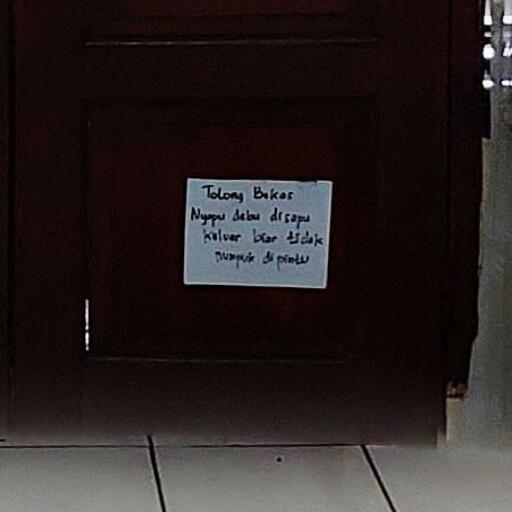 Tolong Bekas
Nyapu debu disapu
keluar biar tidak
numpuk dipintu